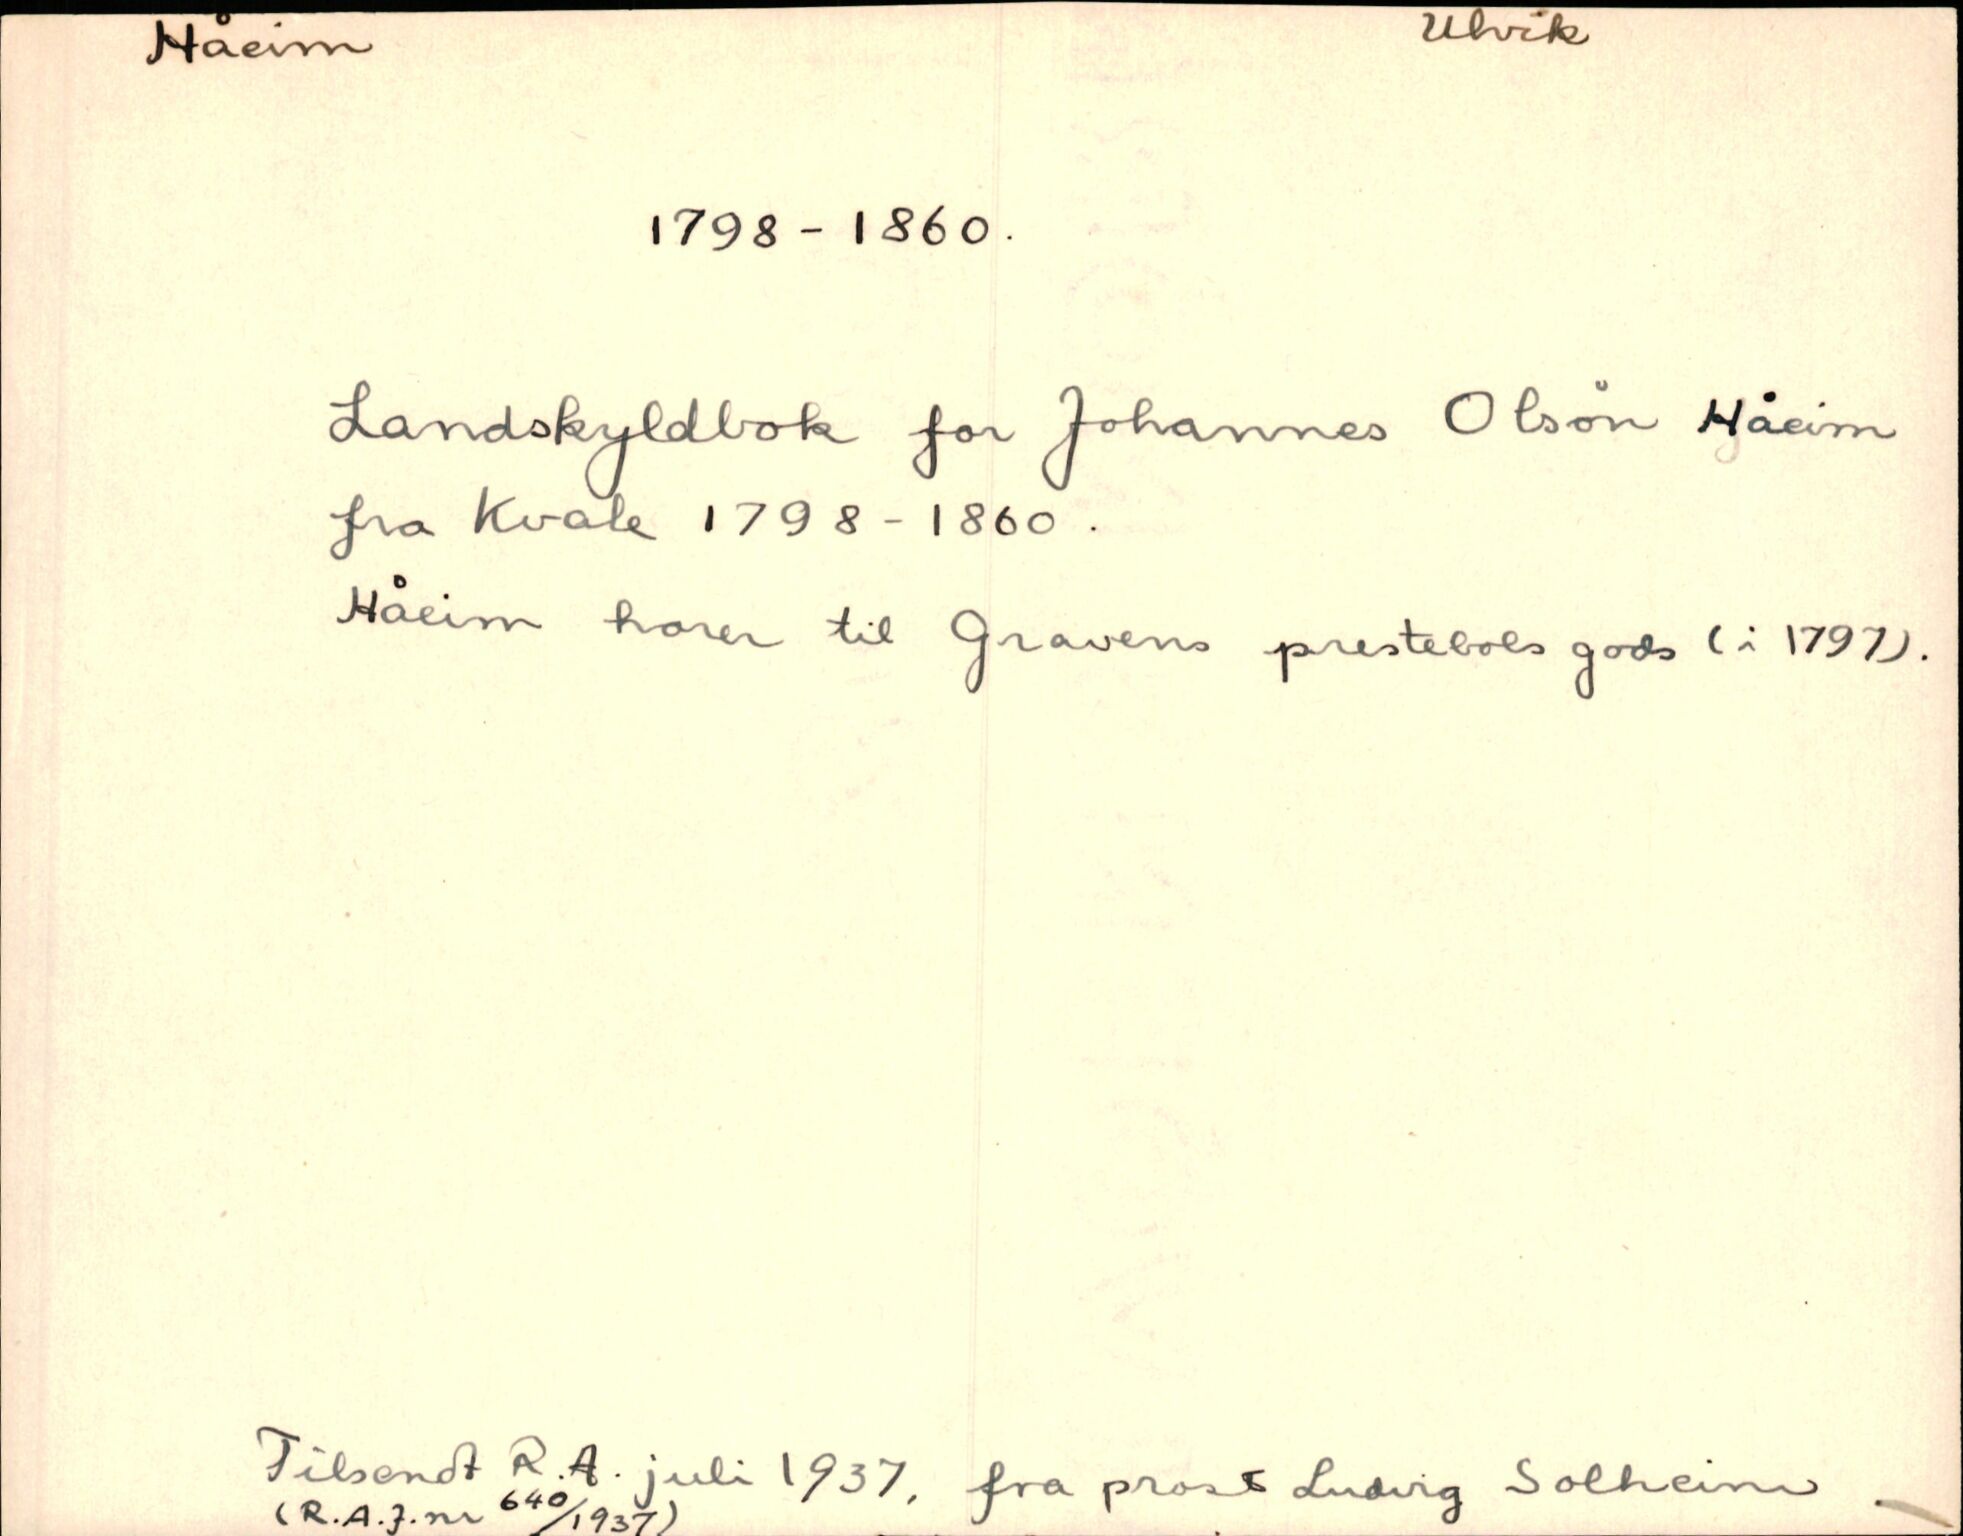 Håeim Ulvik
1798-1860.
Landskyldbok for Johannes Olsön Håeim
fra Kvale 1798-1860.
Håeim horer til Gravens prestebols gods (i 1797).
Tilsendt R.A. juli 1937, fra prost Ludvig Solheim
(R.A.J.nr 640/1937)